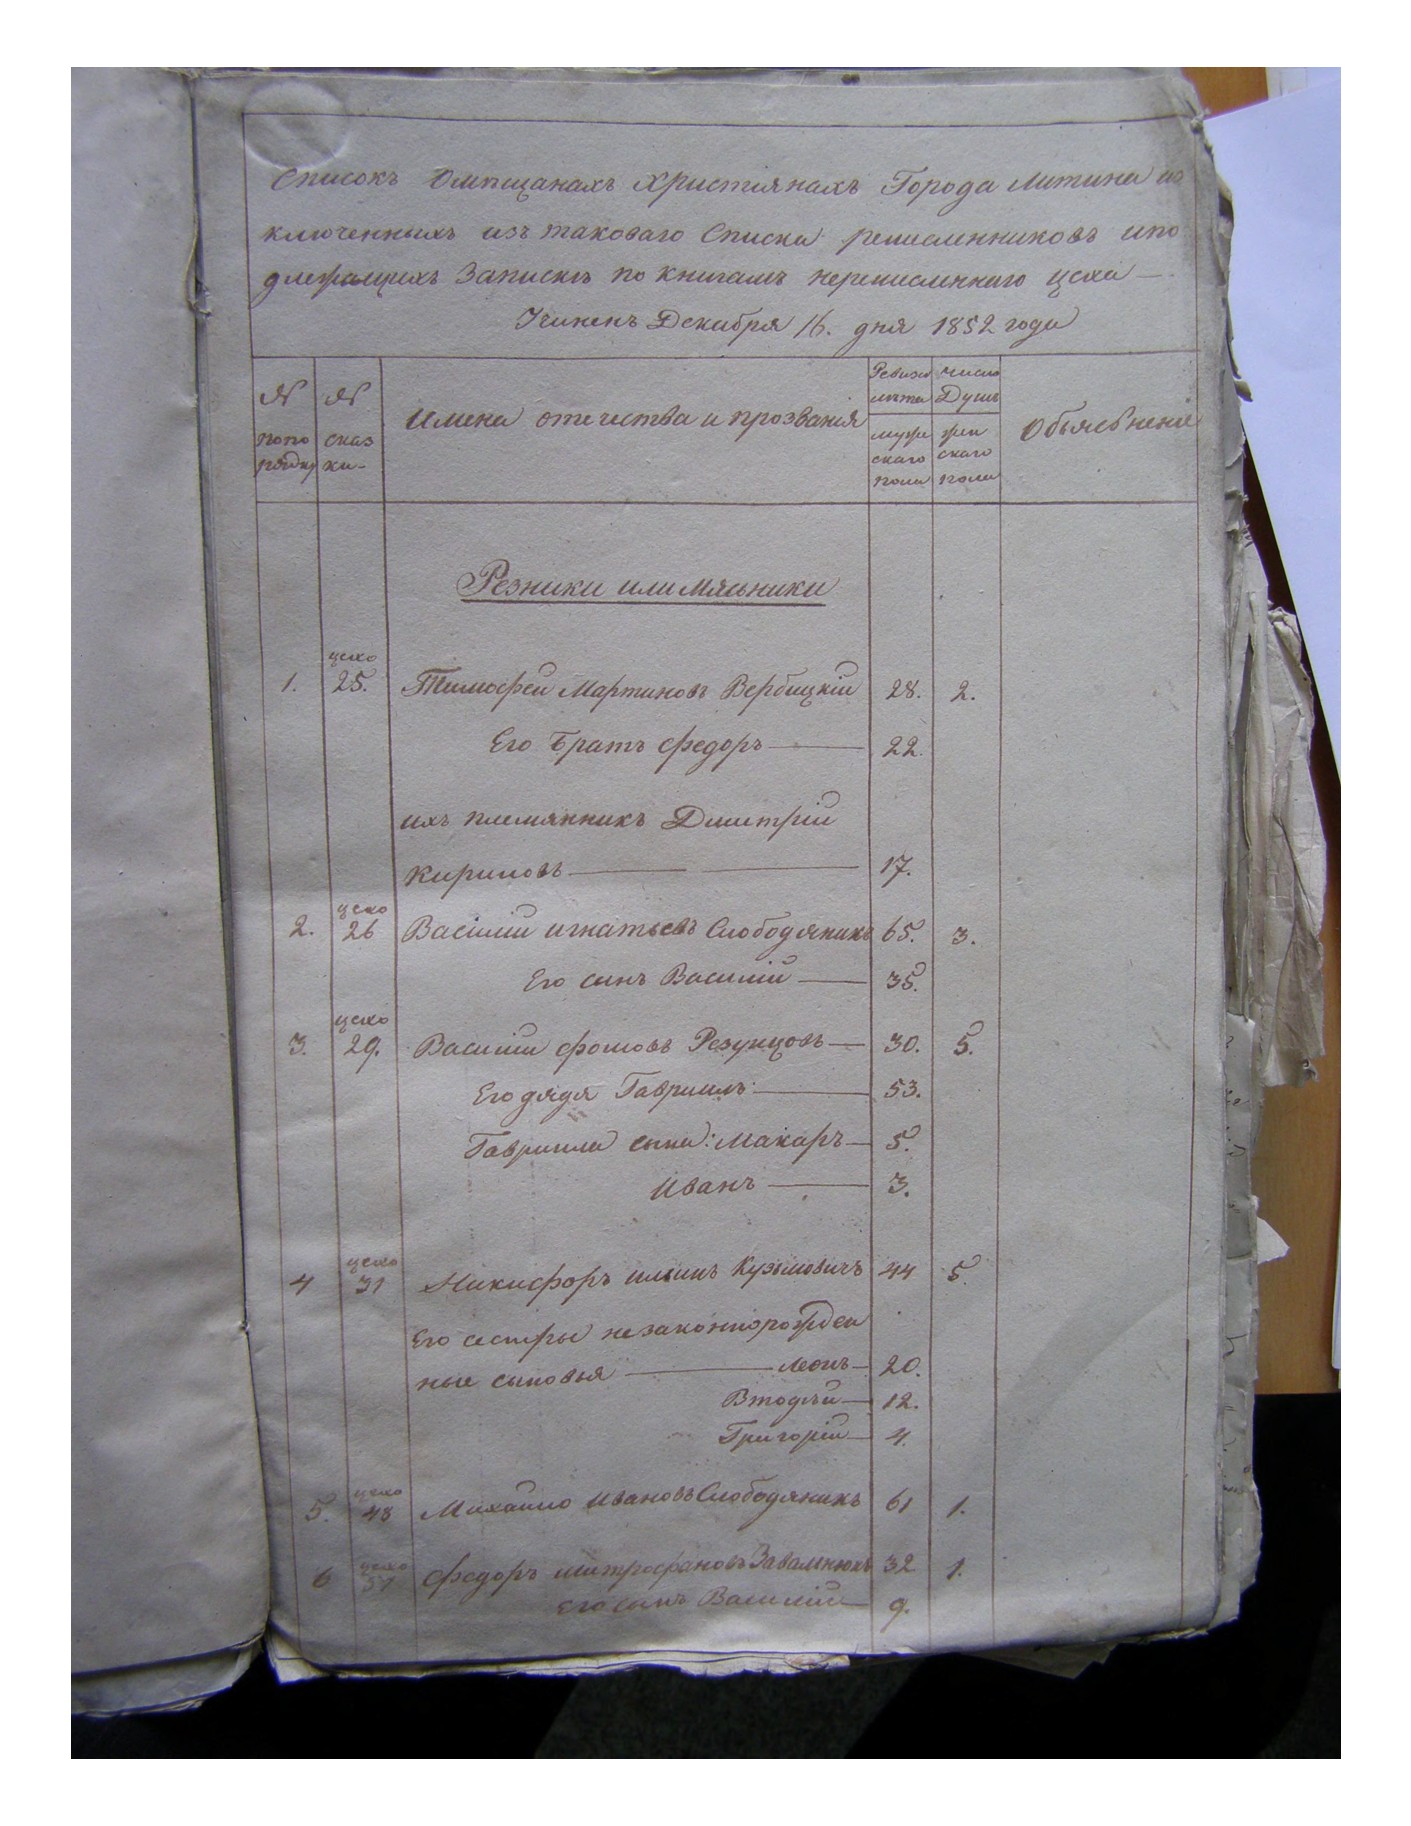 Списокъ Омѣщанахъ Христіянахъ Города Литина из
ключенныхъ изъ таковаго Списка ремисленниковъ ипо
длежащихъ Запискѣ по книгамъ неремисленнаго цеха —
Учиненъ Декабря 16. дня 1852 года
№ попо рядку
№ сказ ки-
Имена отечества и прозванія
Ревизс лѣта мужескаго пола
число Душъ женскаго пола
Объясненіе
Резники или Мясники
1. цехо 25. Тимофей Мартиновъ Вербицкій 28. 2.
Его Братъ Федоръ — 22.
ихъ племянникъ Дмитрій
Кириловъ — 17.
2. цехо 26 Василій игнатьевъ Слободяникъ 65. 3.
Его синъ Василій — 35.
3. цехо 29. Василій фомовъ Резунцовъ — 30. 5.
Его дядя Гавриилъ — 53.
Гавриила сына: Макаръ — 5.
Иванъ — 3.
4 цехо 31 Никифоръ ильинъ Кузьмовичъ 44 5.
Его сестры незаконнорожден
ные сыновья — Леонъ — 20.
12.
Григорій — 4.
5. цехо 48 Михайло Ивановъ Слободяникъ 61 1.
6 цехо 51 Федоръ митрофановъ Завальнюкъ 32 1.
Его синъ Василій — 9.